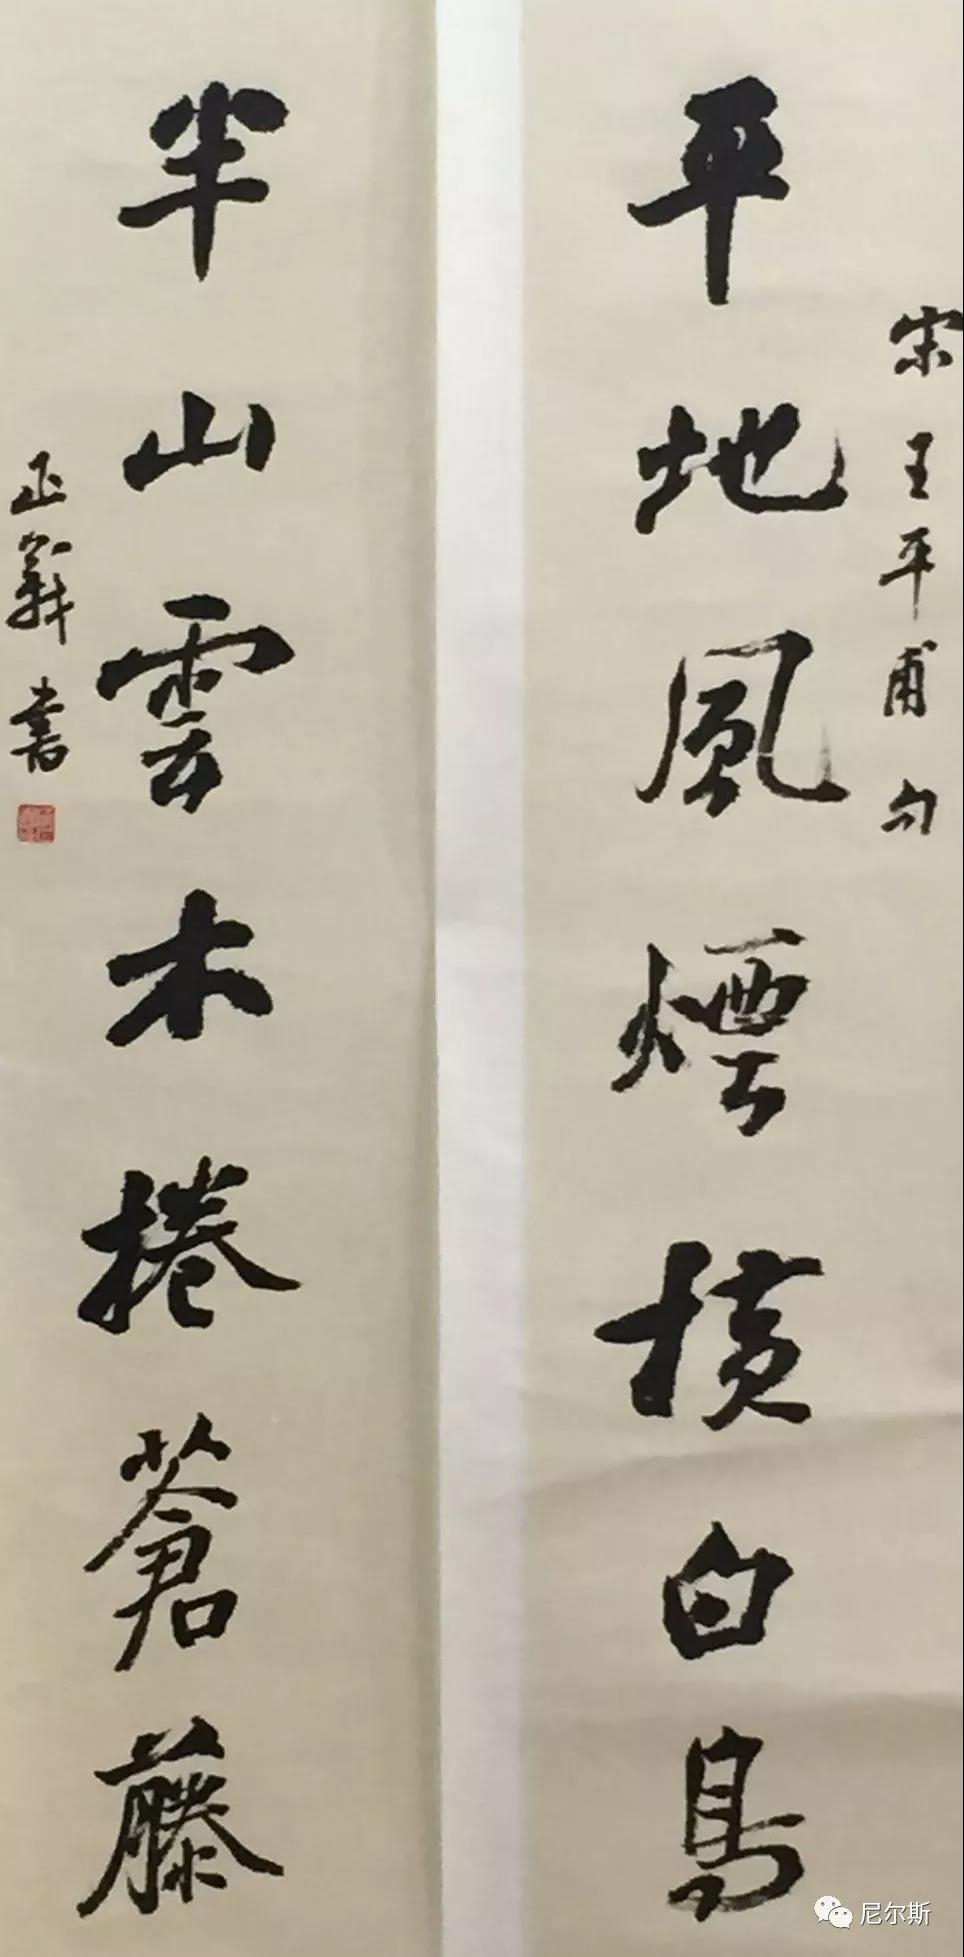 宋王平甫句
平地風煙橫白鳥
半山雲木捲蒼藤
正義書
尼尔斯